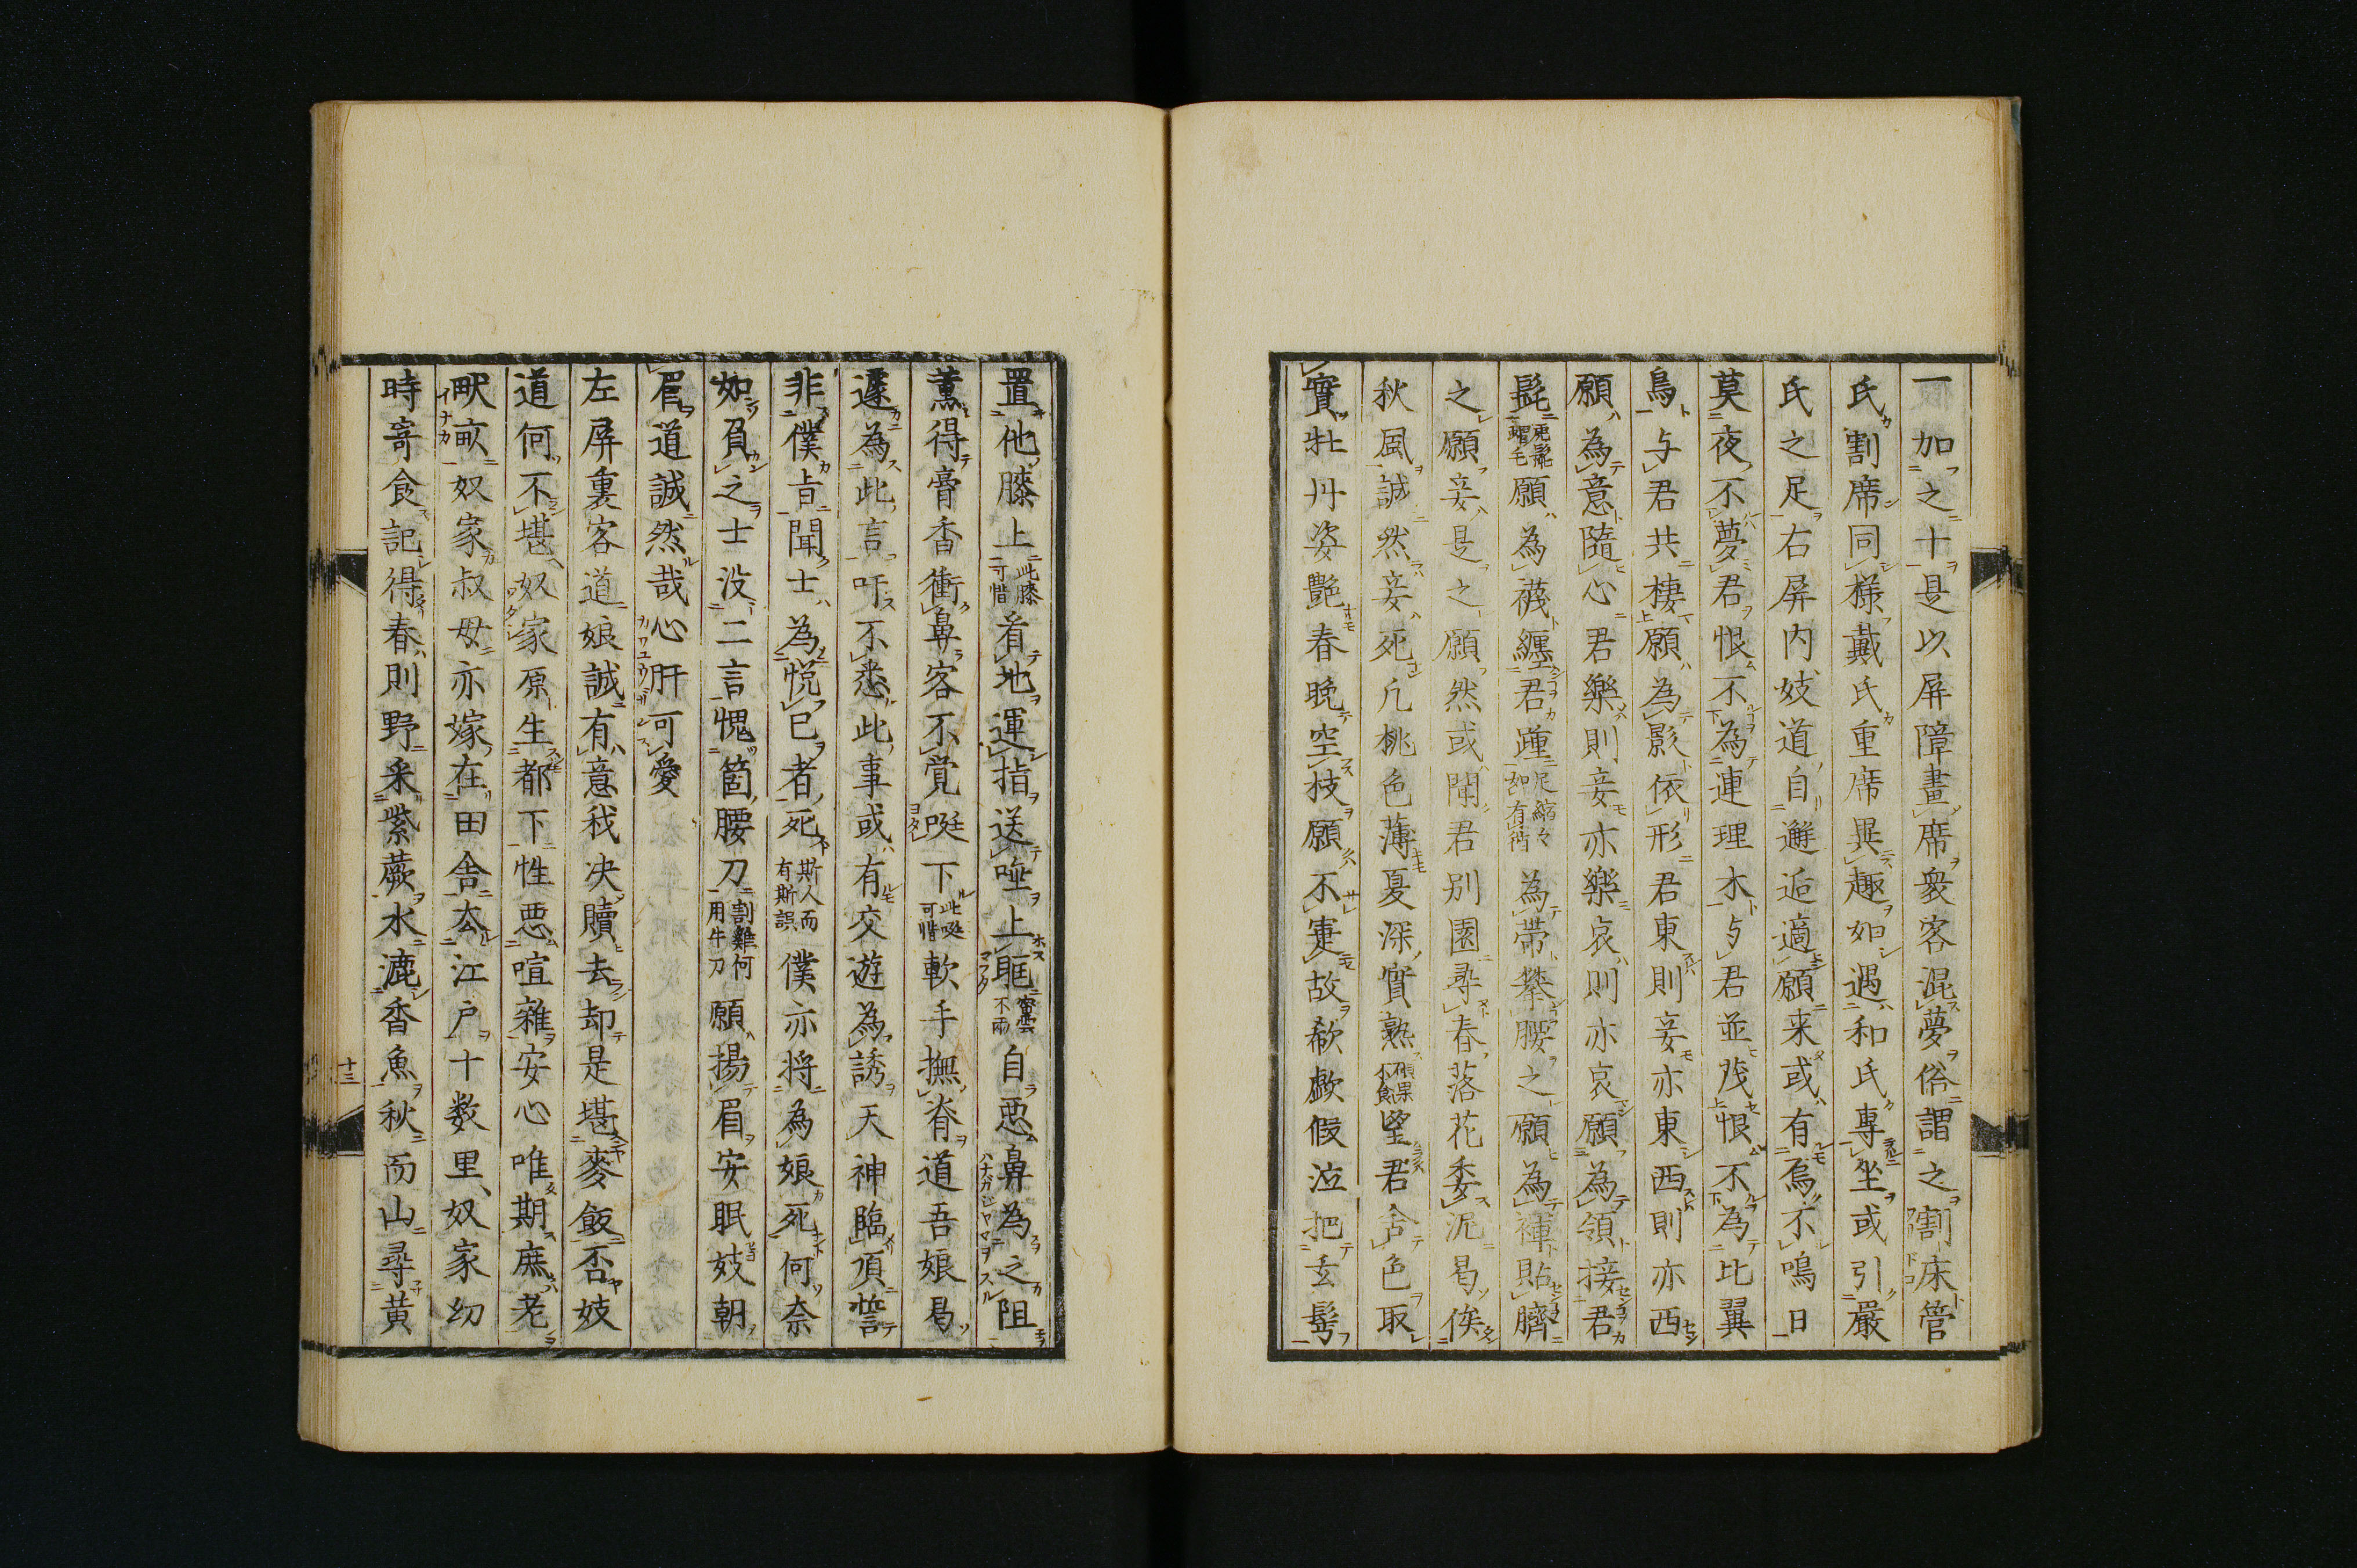 一加之十是以屏障畫席衆客混夢俗謂之割床管
氏割席同様戴氏重席異趣如遇和氏專坐或引嚴
氏之足右屏内妓道自邂逅適願来或有烏不鳴日
莫夜不夢君恨不為連理木与君並茂恨不為比翼
鳥与君共棲願為影依形君東則妾亦東西則亦西
願為意隨心君樂則妾亦樂哀則亦哀願為領接君
髭願為襪纏君踵足縮々如有循為帶攀腰之願為褌貼臍
之願妾是之願然或聞君別園尋春落花委泥曷俟
秋風誠然妾死凢桃色薄夏深實熟碩果不食望君舎色取
實牡丹姿艷春晩空枝願不寔故欷歔假泣把玄髩
置他膝上此膝可惜着地運指送唾上眶密雲不雨自悪鼻為之阻
薫得膏香衝鼻客不覚唌下此唌可惜軟手撫脊道吾娘曷
遽為此言吁不悉此事或有交遊為誘天神臨頂誓
非僕㫖聞士為悦己者死斯人而有斯誤僕亦将為娘死何奈
如負之士没二言愧箇腰刀割雞何用牛刀願揚眉安眠妓朝
眉道誠然哉心肝可愛
左屏裏客道娘誠有意我决贖去却是堪麥飯否妓
道何不堪奴家原生都下性悪喧雜安心唯期庶老
畎畝奴家叔母亦嫁在田舎厺江戸十数里奴家幼
時寄食記得春則野采紫蕨水漉香魚秋而山尋黄
十三